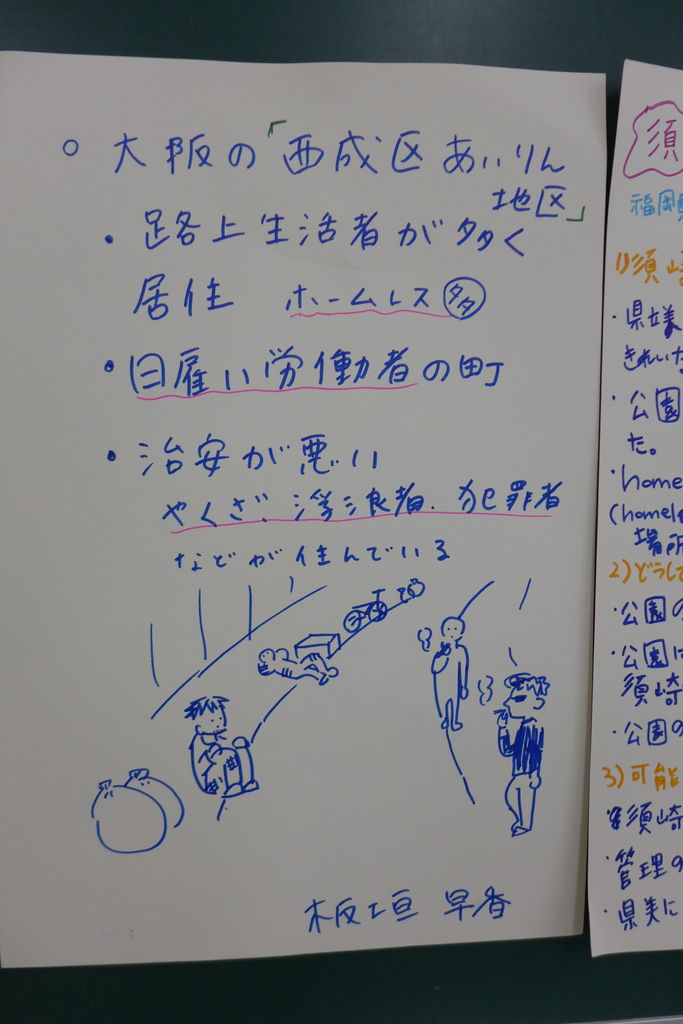 ○ 大阪の「西成区あいりん
地区」
・路上生活者が多く
居住 ホームレス多
・日雇い労働者の町
・治安が悪い
やくざ、浮浪者、犯罪者
などが住んでいる
板垣 早香
須
福岡
1)須崎
・県美
きれいな
・公園
た。
・home
(homele
場所
2)どうして
・公園の
・公園に
須崎
・公園の
3)可能
須崎
・管理の
・県美に